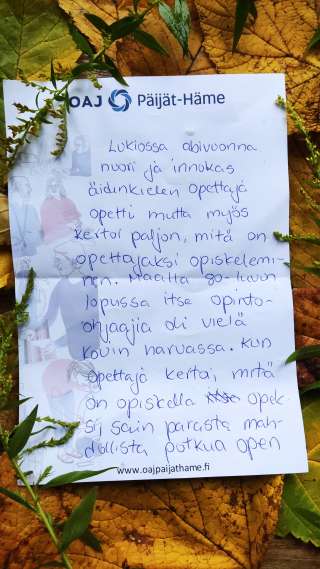 OAJ Päijät-Häme
Lukiossa abivuonna
nuori ja innokas
äidinkielen opettaja
opetti mutta myös
kertoi paljon, mitä on
opettajaksi opiskelemi-
nen. Maalla 80-luvun
lopussa itse opinto-
ohjaajia oli vielä
kovin harvassa. Kun
opettaja kertoi, mitä
on opiskella opek-
si, sain parasta mah-
dollista potkua open
www.oajpaijathame.fi